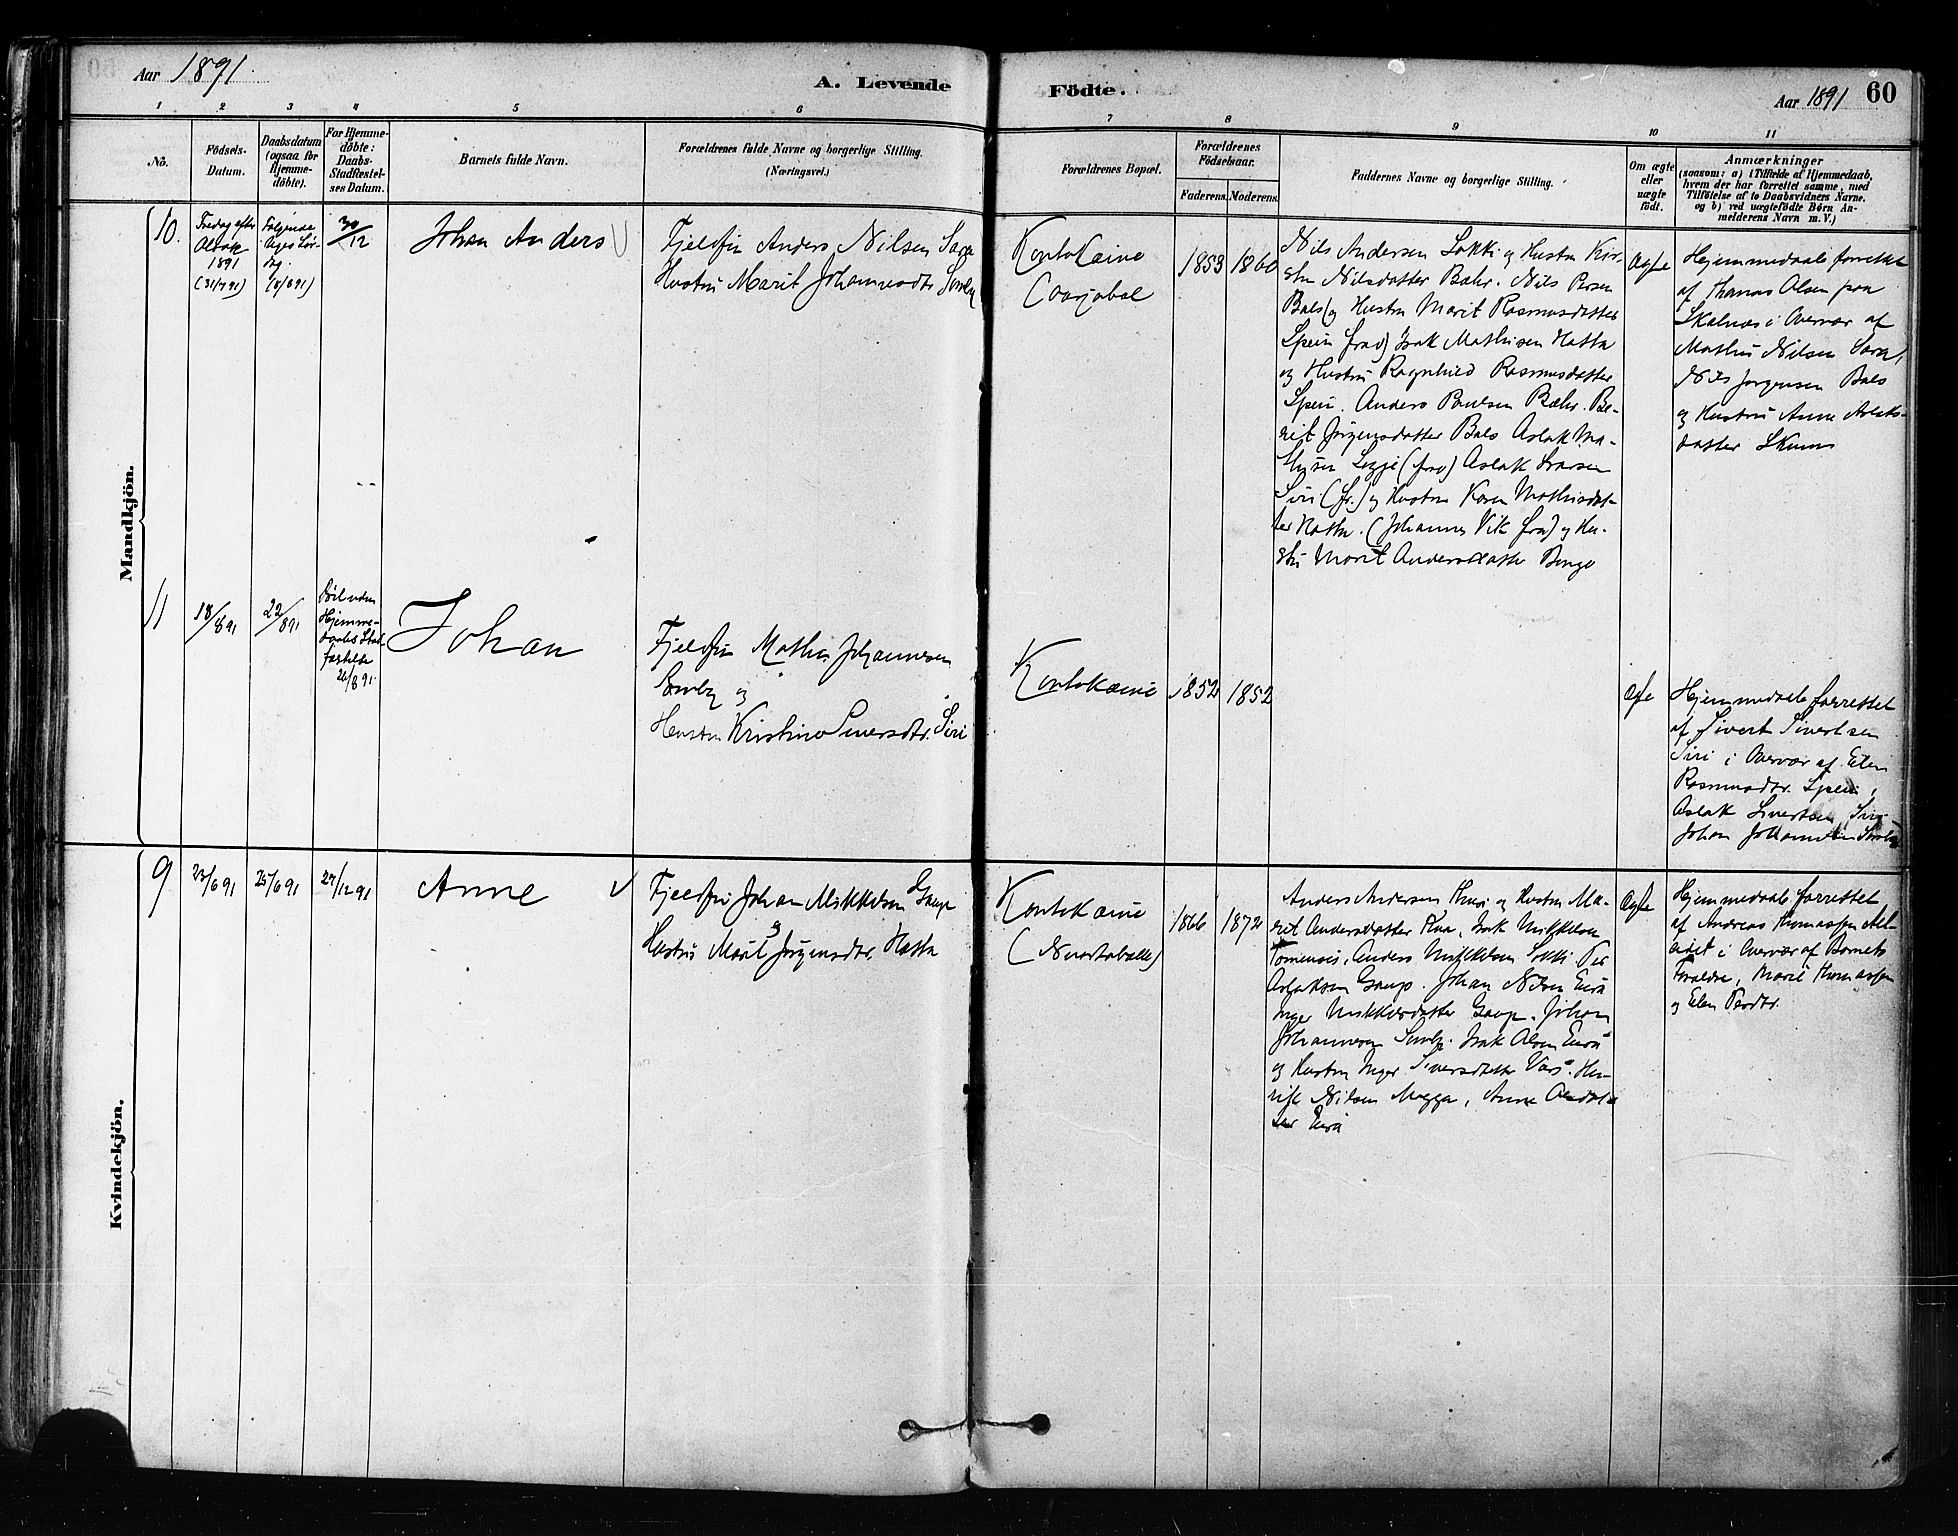 Aar 1891.
A. Levende Födte.
Aar 1891 60
1 2 3 4 5 6 7 8 9 10 11
No.
Födsels-
Datum.
Daabsdatum
(ogsaa for
Hjemme-
döbte).
For Hjemme-
döbte:
Daabs-
Stadfæstel-
ses Datum.
Barnets fulde Navn.
Forældrenes fulde Navne og borgerlige Stilling.
(Næringsvei.)
Forældrenes Bopæl.
Forældrenes
Födselsaar.
Faderens. Moderens.
Faddernes Navne og borgerlige Stilling.
Om ægte
eller
uægte
födt.
Anmærkninger
(saasom: a) i Tilfælde af Hjemmedaab,
hvem der har forrettet samme, med
Tilföielse af to Daabsvidners Navne.
og b) ved uægtefödte Börn An-
melderens Navn m. V.)
Mandkjön.
10.
Fredag efter
Olsok
1891
(31/7 91)
Følgende
Dags Lør-
dag.
(1/8 91)
30/12
Johan Anders
Fjeldfin Anders Nilsen Sara
Hustru Marit Johannesdtr Somby
Kautokeino
1853 1860
Nils Andersen Lokki og Hustru Kir-
sten Nilsdatter Bæhr. Nils Persen
Bals og Hustru Marit Rasmusdatter
Spein (fra) Isak Mathisen Hætta
og Hustru Ragnhild Rasmusdatter
Spein. Anders Poulsen Bæhr. Be-
rit Jørgensdatter Bals Aslak Ma-
thisen (fra) Aslak Ivarsen
Siri (fr.) og Hustru Karen Mathisdat-
ter Hætta. (Johannes Vik fra) og Hu-
stru Marit Andersdatter Bongo
Ægte
Hjemmedaab forrettet
af Thomas Olsen paa
Skalnæs i Overvær af
Mathis Nilsen Sara,
Nils Jørgensen Bals
og Hustru Anne Aslaks-
datter Skum
11
18/8 91
22/8 91
Hjemme-
daabs Stad-
fæstelse
Johan
Fjeldfin Mathis Johannesen
Somby og
Hustru Kristine Siversdtr. Siri
Kautokeino
1852 1852
Ægte
Hjemmedaab forrettet
af Sivert Sivertsen
Siri i Overvær af Elen
Rasmusdtr. Spein,
Aslak Sivertsen Siri
Johan Johannesen Somby
Kvindekjön.
9
23/6 91
25/6 91
27/12 91
Anne
Fjeldfin Johan Mikkelsen Gaup
og
Hustru Marit Jørgensdtr. Hætta
Kautokeino
1866 1872
Anders Andersen Thuri og Hustru Ma-
rit Andersdatter, Isak Mikkelsen
Tornensis, Anders Mikkelsen Lokki Per
Aslaksen Gaup. Johan Nilsen Eira
Inger Mikkelsdatter Gaup. Johan
Johannesen Somby. Isak Olsen Eira
og Hustru Inger Siversdatter Vars. Hen-
rik Nilsen Magga, Anne
Eira
Ægte
Hjemmedaab forrettet
af Andreas Thomassen
i Overvær af Barnets
Forældre, Marit Thomassen
og Elen Persdtr.